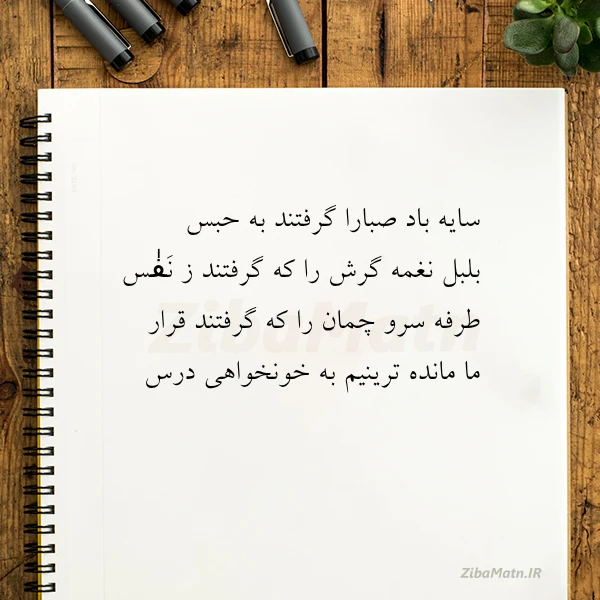 سایه باد صبارا گرفتند به حبس
بلبل نغمه گرش را که گرفتند ز نَفَس
طرفه سرو چمان را که گرفتند قرار
ما مانده ترینیم به خونخواهی درس
ZibaMatn
ZibaMatn.IR